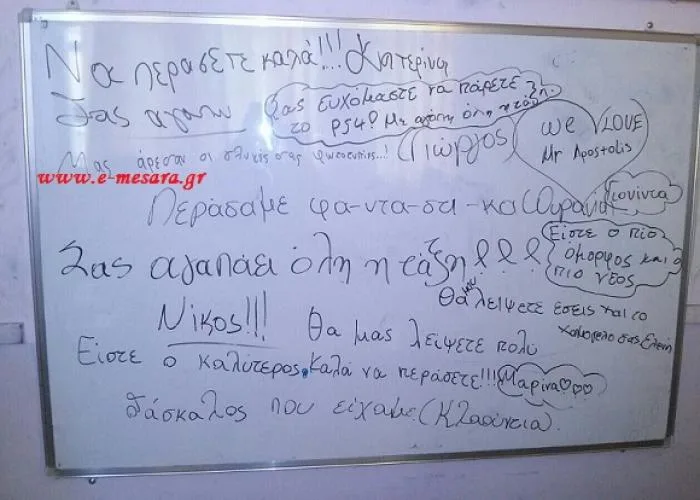 Να περάσετε καλά!!! Κατερίνα
Σας αγαπώ
Σας ευχόμαστε να πάρετε
το PS4! Με αγάπη όλη η τάξη.
Μας άρεσαν οι γλυκές σας φωνούλες..!
(Γιώργος)
We LOVE
Mr Apostolis
www.e-mesara.gr
Περάσαμε φα-ντα-στι-κα! Ουρανία
Γιονίντα
Σας αγαπάει όλη η τάξη!!!
Είστε ο πιο
όμορφος και ο
πιο νέος
Θα μου λείψετε εσείς και το
χαμόγελο σας Ελένη
Νίκος!!! Θα μας λείψετε πολύ
Είστε ο καλύτερος. Καλά να περάσετε!!! Μαρίνα♡♡♡
δάσκαλος που είχαμε (Κλαούντια).